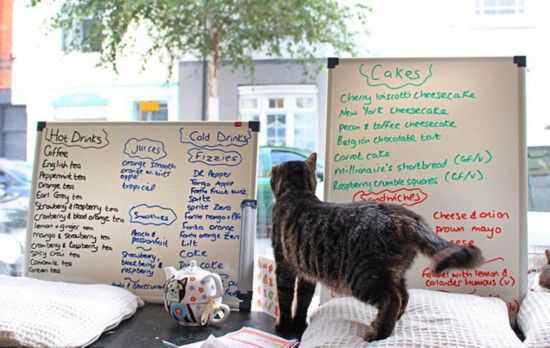 Hot Drinks
Coffee
English tea
Peppermint tea
Orange tea
Earl Grey tea
Strawberry & raspberry tea
Cranberry & blood orange tea
Lemon & ginger tea
Mango & strawberry tea
Cranberry & Raspberry tea
Spicy chai tea
Camomile tea
Green tea
Juices
orange smooth
orange w/ bits
apple
tropical
Smoothies
Peach &
passionfruit
Strawberry,
blackberry &
raspberry
Cold Drinks
Fizzies
DR Pepper
Tango Apple
Fanta Fruit Twist
Sprite
Sprite Zero
Fanta mango &
Fanta orange
Fanta orange Zero
Lilt
Coke
Diet coke
Cakes
Cherry biscotti cheesecake
New York cheesecake
Pecan & toffee cheesecake
Belgian chocolate tart
Carrot cake
Millionaire's shortbread (GF/V)
Raspberry crumble squares (GF/V)
Sandwiches
Cheese & onion
prawn mayo
cheese
with lemon &
houmous (v)